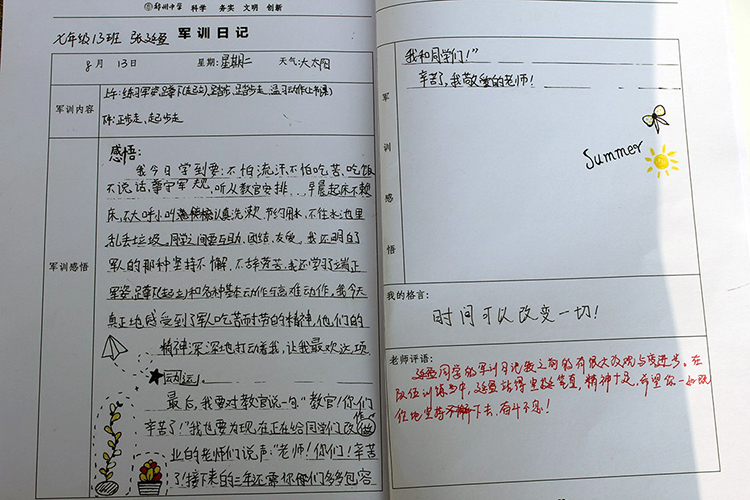 郅州中学 科学 务实 文明 创新
七年级13班 张廷盈
军训日记
8月 13日 星期:星期二 天气:大太阳
军训内容
上午:练习军姿,蹲下(起立),踏步,踏步走,温习动作(上节课)
下午:正步走,起步走
军训感悟
感悟:
我今日学到要:不怕流汗不怕吃苦,吃饭
不说话,遵守军规,听从教官安排...早晨起床不赖
床,不大呼小叫认真洗漱,节约用水,不往水池里
乱丢垃圾,同学之间要互助,团结,友爱,我还明白了
军人的那种坚持不懈,不辞劳苦,我还学习了端正
军姿,蹲下(起立)和各种基本动作与高难动作,我今天
真正地感受到了军人吃苦而耐劳的精神,他们的
精神深深地打动着我,让我最欢这项
运动.
最后,我要对教官说一句“教官!你们
辛苦了!”我也要为现在正在给同学们改作
业的老师们说声:“老师!你们!辛苦
了!接下来的三年还需你们多多包容
我和同学们!”
辛苦了,我敬爱的老师!
军训感悟
Summer
我的格言:
时间可以改变一切!
老师评语:
廷盈同学的军训日记较之前的有很大改观与进步。在
队伍训练当中,廷盈站得里挺笔直,精神十足,希望你一如既
往地坚持下去,奋斗不息!